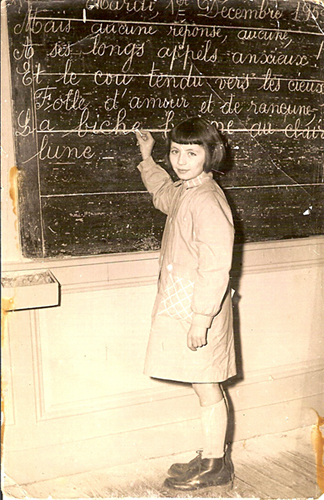 Mardi, 1er Décembre 19
Mais aucune réponse, aucune, !
A ses longs appels anxieux !
Et le cou tendu vers les cieux
Folle d'amour et de rancune
La biche au clair
lune